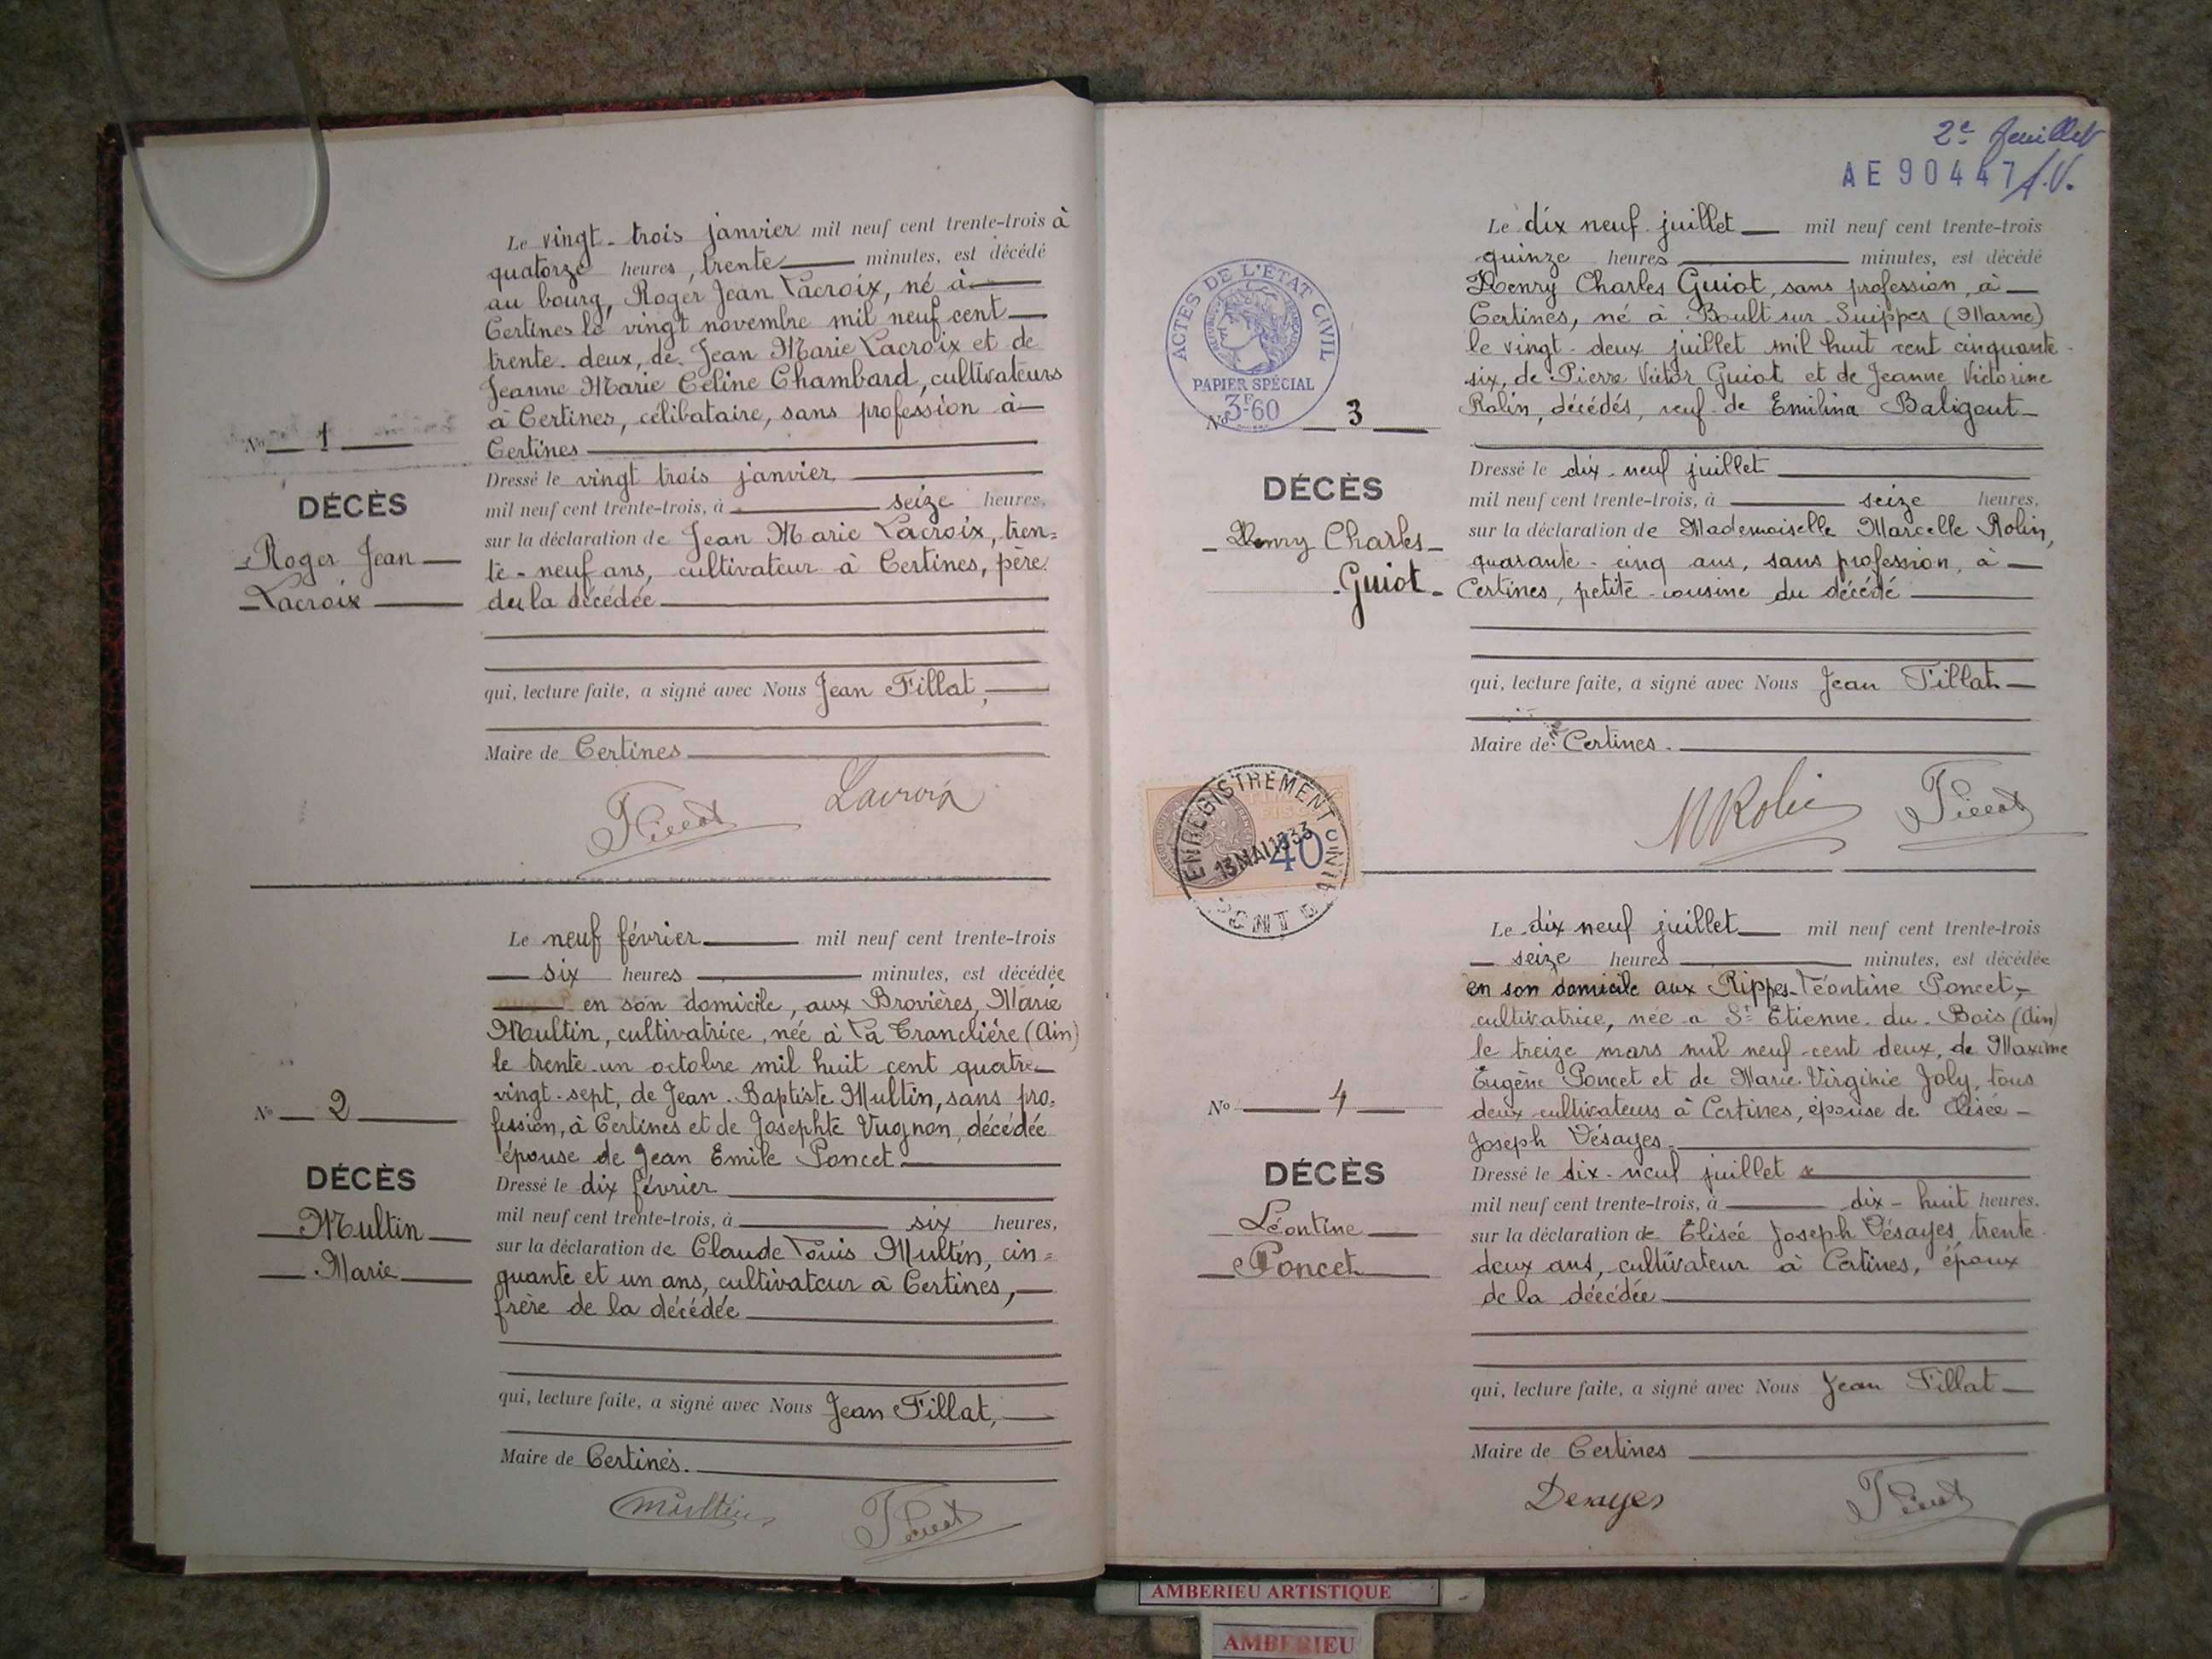 Le vingt-trois janvier mil neuf cent trente-trois à
quatorze heures, trente minutes, est décédé
au bourg, Roger Jean Lacroix, né à
Certines le vingt novembre mil neuf cent
trente-deux, de Jean Marie Lacroix et de
Jeanne Marie Céline Chambard, cultivateurs
à Certines, célibataire, sans profession à
Certines
Nº 1
DÉCÈS
Roger Jean
Lacroix
Dressé le vingt trois janvier
mil neuf cent trente-trois, à seize heures,
sur la déclaration de Jean Marie Lacroix, tren=
te-neuf ans, cultivateur à Certines, père
du la décédée
qui, lecture faite, a signé avec Nous Jean Tillat,
Maire de Certines
Lacroix
Le neuf février mil neuf cent trente-trois
six heures minutes, est décédée
en son domicile, aux Brovières, Marie
Multin, cultivatrice, née à La Tranclière (Ain)
le trente-un octobre mil huit cent quatre-
vingt-sept, de Jean-Baptiste Multin, sans pro=
fession, à Certines et de Josephte Vugnon, décédée
épouse de Jean Emile Poncet
Nº 2
DÉCÈS
Multin
Marie
Dressé le dix février
mil neuf cent trente-trois, à six heures,
sur la déclaration de Claude Louis Multin, cin=
quante et un ans, cultivateur à Certines,
frère de la décédée
qui, lecture faite, a signé avec Nous Jean Tillat,
Maire de Certines.
Multin
2e feuillet
AE 90447
ACTES DE L'ÉTAT CIVIL
PAPIER SPÉCIAL
3F60
Le dix neuf juillet mil neuf cent trente-trois
quinze heures minutes, est décédé
Henry Charles Guiot, sans profession, à
Certines, né à Boult sur Suippes (Marne)
le vingt-deux juillet mil huit cent cinquante-
six, de Pierre Victor Guiot et de Jeanne Victorine
Rolin, décédés, veuf de Emilina Baligout
Nº 3
DÉCÈS
Henry Charles
Guiot
Dressé le dix-neuf juillet
mil neuf cent trente-trois, à seize heures,
sur la déclaration de Mademoiselle Marcelle Rolin,
quarante-cinq ans, sans profession, à
Certines, petite-cousine du décédé
qui, lecture faite, a signé avec Nous Jean Tillat
Maire de Certines.
M Rolin
ENREGISTREMENT
13 MAI 1933
40
Le dix neuf juillet mil neuf cent trente-trois
seize heures minutes, est décédée
en son domicile aux Rippes Léontine Poncet,
cultivatrice, née à St Etienne-du-Bois (Ain)
le treize mars mil neuf-cent deux, de Maxime
Eugène Poncet et de Marie-Virginie Joly, tous
deux cultivateurs à Certines, épouse de Elisée
Joseph Désayes
Nº 4
DÉCÈS
Léontine
Poncet
Dressé le dix-neuf juillet
mil neuf cent trente-trois, à dix-huit heures,
sur la déclaration de Elisée Joseph Désayes, trente-
deux ans, cultivateur à Certines, époux
de la décédée
qui, lecture faite, a signé avec Nous Jean Tillat
Maire de Certines
Desayes
AMBERIEU ARTISTIQUE
AMBERIEU